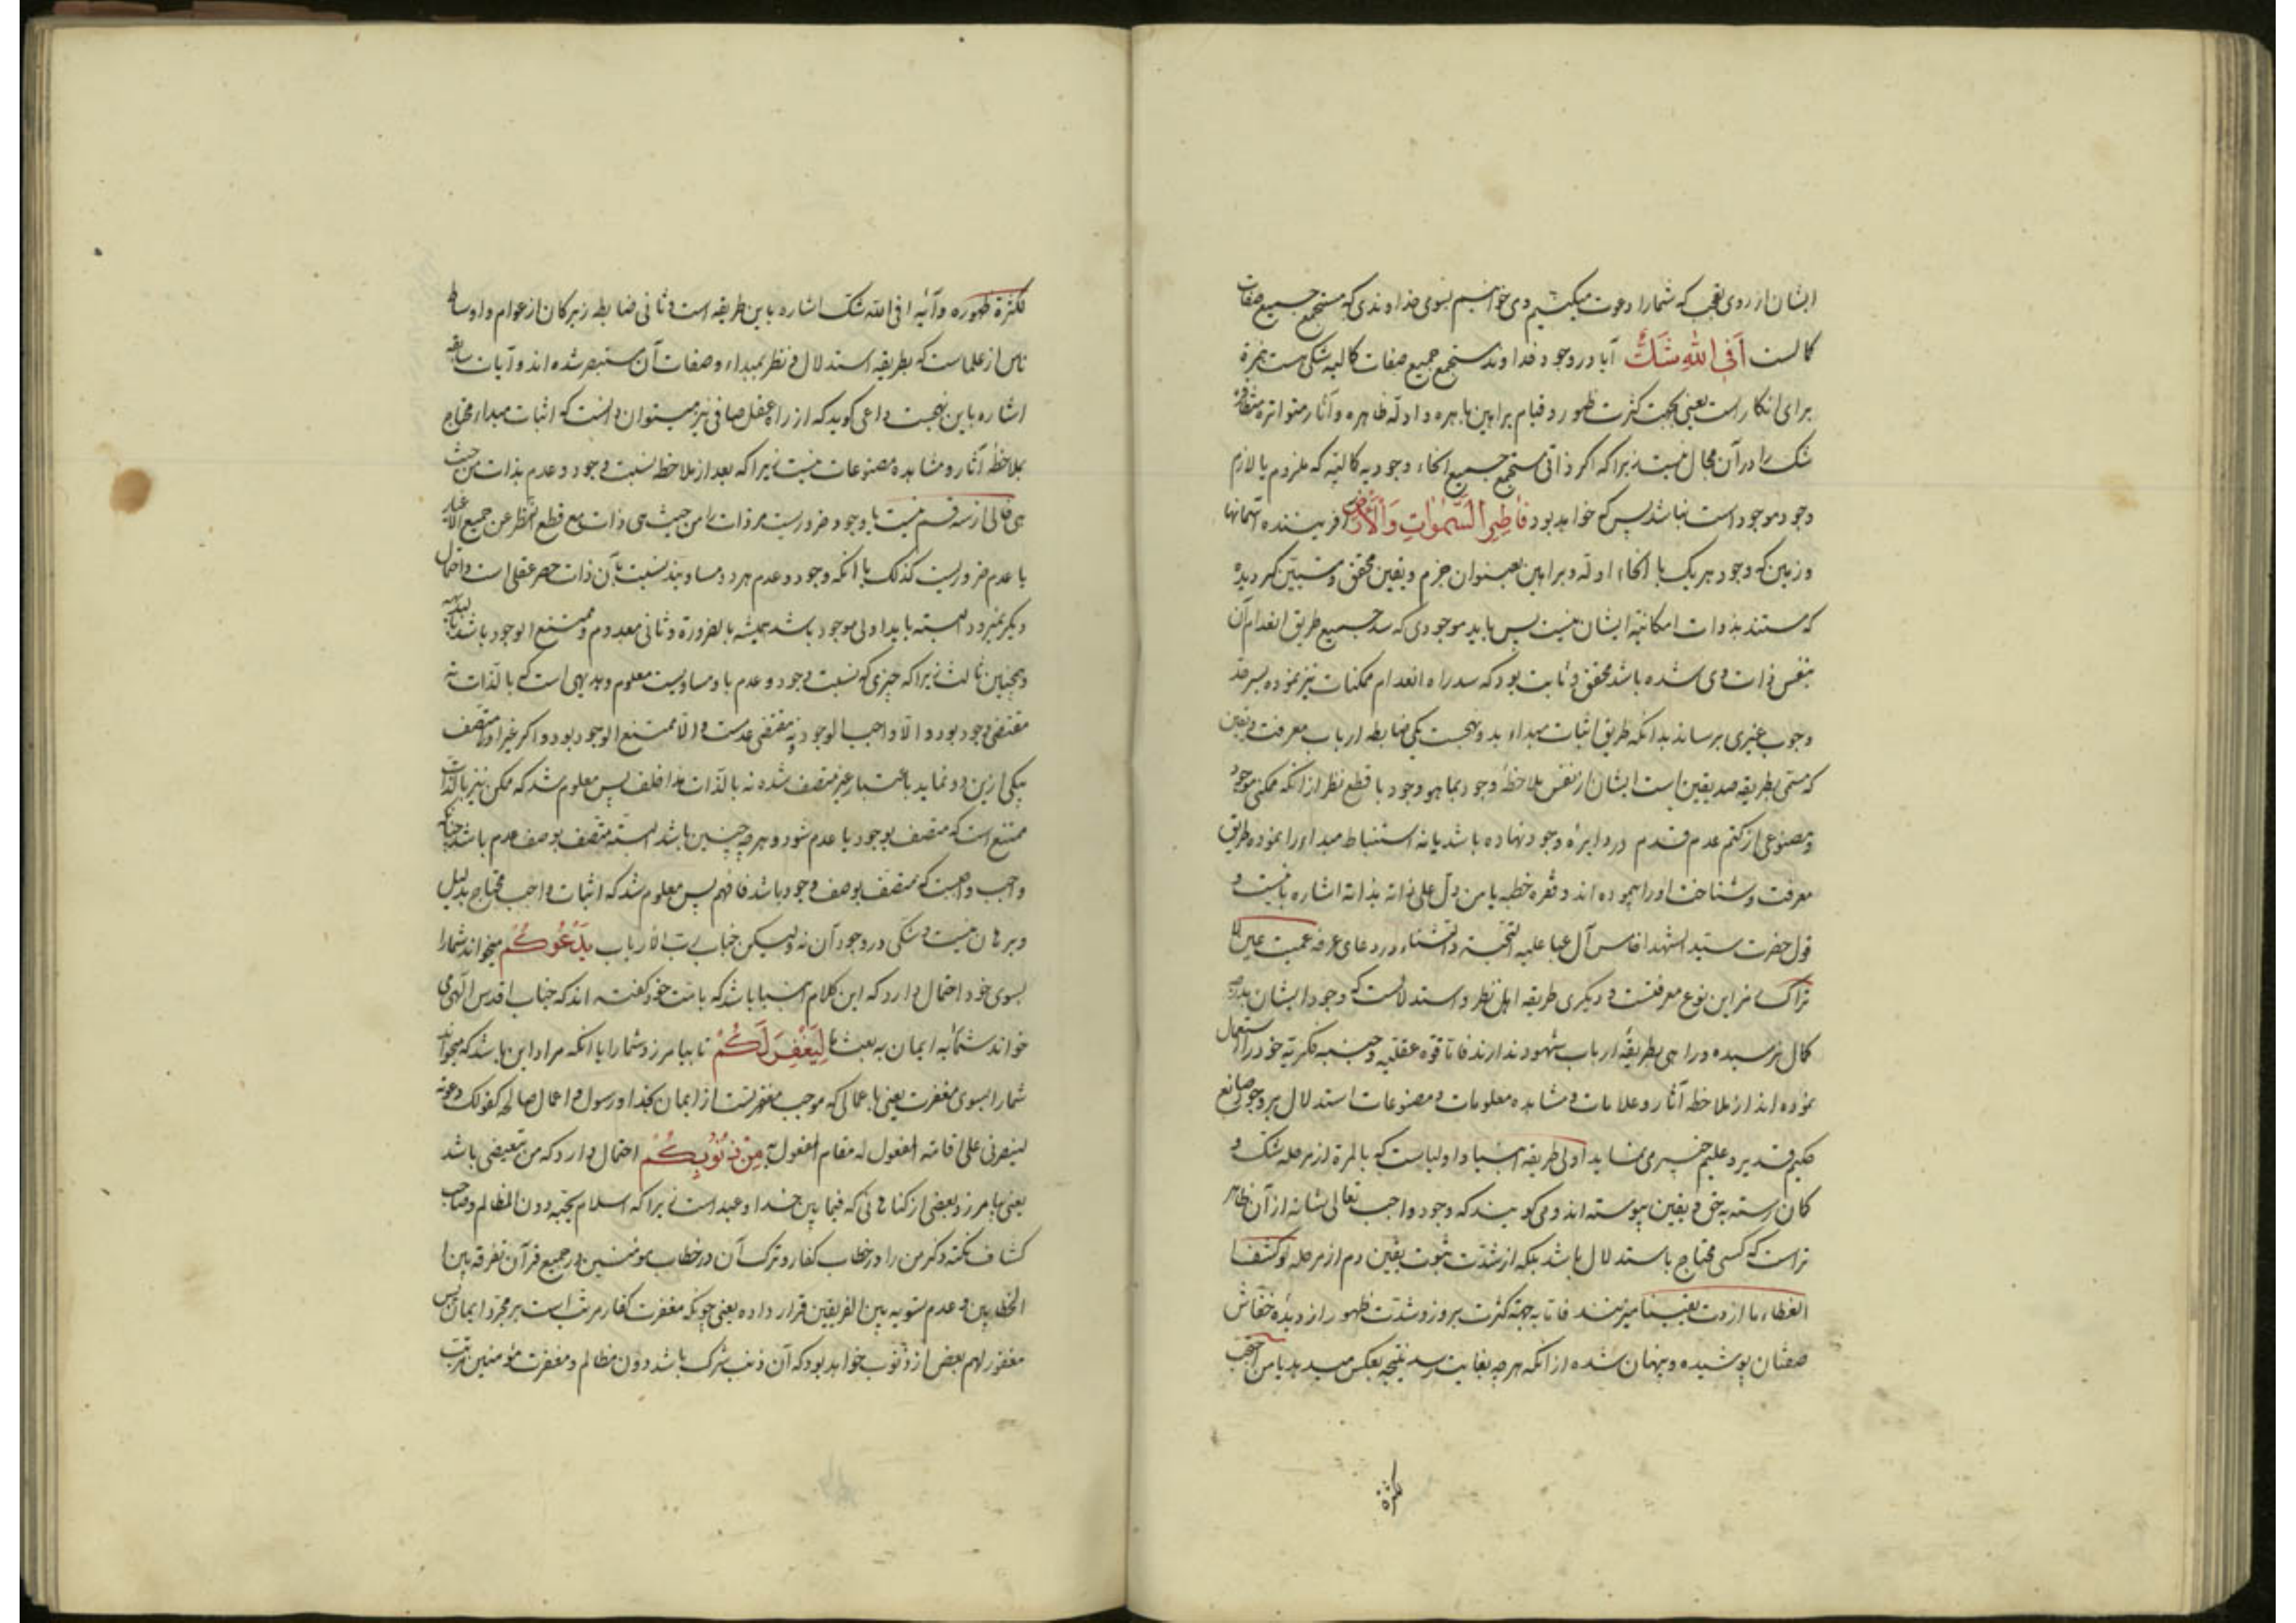 ایشان از روی تعجب که شما را دعوت میکنیم و می خوانیم بسوی خداوندی که مستجمع جمیع صفات
کمالست اَفِی اللّٰهِ شَکٌّ آیا در وجود خداوند مستجمع جمیع صفات کمالیه شکی هست همزه
برای انکار است یعنی بجهت کثرت ظهور و قیام براهین باهره و ادلّه ظاهره و آثار متواتره متظافره
شک را در آن مجال نیست زیرا که اگر ذاتی مستجمع جمیع انحاء وجودیه کمالیّه که ملزوم یا لازم
وجود موجود است نباشد پس که خواهد بود فَاطِرِ السَّمٰوَاتِ وَالْاَرْضِ آفریننده آسمانها
و زمین که وجود هر یک با انحاء ادلّه و براهین بعنوان جزم و یقین محقق و متبیّن گردیده
که مستند بذوات امکانیّه ایشان نیست پس باید موجودی که سد جمیع طریق انعدام آن
بنفس ذات وی شده باشد محقق و ثابت بود که سد راه انعدام ممکنات نیز نموده بسرحد
وجوب غیری برساند بدانکه طریق اثبات مبداء بدو نهجست یکی ضابطه ارباب معرفت و یقین
که مسمّی بطریقه صدیقین است ایشان از نفس ملاحظهٔ وجود بما هو وجود با قطع نظر از انکه ممکنی موجود
و مصنوعی از کتم عدم قدم در دایرهٔ وجود نهاده باشد یا نه استنباط مبداء را نموده طریق
معرفت و شناخت او را پیموده اند و فقره خطبه یا من دلّ علی ذاته بذاته اشاره باینست و
قول حضرت سید الشهدا خامس آل عبا علیه التحیّة و الثناء در دعای عرفه عمیت عین لا
تراک نیز این نوع معرفتست و دیگری طریقه اهل نظر و استدلالست که وجود ایشان بدرجه
کمال نرسیده و راهی بطریقهٔ ارباب شهود ندارند فاتا قوه عقلیه و جنبه فکریه خود را استعمال
نموده اند از ملاحظه آثار و علامات و مشاهده معلومات و مصنوعات استدلال بر وجود صانع
حکیم قدیر و علیم خبیر می نماید اولی طریقه انبیا و اولیاست که بالمرة از مرحله شک و
کمان رسته بحق و یقین پیوسته اند و می کویند که وجود واجب تعالی شانه از آن ظاهر
تر است که کسی محتاج باستدلال باشد بلکه از شدّت ثبوت یقین دم از مرحله لو کشف
الغطاء ما ازددت یقینا میزنند فاتا بجهة کثرت بروز و شدّت ظهور از دیدهٔ خفّاش
صفتان پوشیده و پنهان شده از انکه هر چه بغایت رسد نتیجه بعکس میدهد یا من احتجب
لکثرة
لکثرة ظهوره و آیهٔ افی اللّه شک اشاره باین طریقه است و ثانی ضابطه زیرکان از عوام و اوساط
ناس از علماست که بطریقه استدلال و نظر بمبداء و صفات آن مستبصر شده اند و آیات سابقه
اشاره باین نهجست داعی کوید که از راه عقل صافی نیز میتوان دانست که اثبات مبداء محتاج
بملاحظهٔ آثار و مشاهده مصنوعات نیست زیرا که بعد از ملاحظه نسبت وجود و عدم بذات من حیث
هی خالی از سه قسم نیست یا وجود ضروریست مر ذات را من حیث هی ذات مع قطع النظر عن جمیع الاغیار
یا عدم ضروریست کذلک یا انکه وجود و عدم هر دو مساویند نسبت بآن ذات حصر عقلی است و احتمال
دیگر نمیرود البته باید اولی موجود باشد همیشه بالضرورة و ثانی معدوم و ممتنع الوجود باشد
و همچنین ثالث زیرا که چیزی که نسبت وجود و عدم باو مساویست معلوم و بدیهی است که بالذات نه
مقتضی وجود بود و الّا واجب الوجود و نه مقتضی عدمست و الّا ممتنع الوجود بود و اکر غیر او متصف
بیکی ازین دو نماید باعتبار غیر متصف شده نه بالذات هذا خلف پس معلوم شد که ممکن نیز بالذات
ممتنع است که متصف بوجود یا عدم شود و هر چه چنین باشد البته متصف بوصف عدم باشد چنانکه
واجب واجبست که متصف بوصف وجود باشد فافهم پس معلوم شد که اثبات واجب محتاج بدلیل
و برهان نیست و شکّی در وجود آن نه ولیکن جناب ربّ الارباب یَدْعُوکُمْ میخواند شما را
بسوی خود احتمال دارد که این کلام انبیا باشد که بامّت خود کفته اند که جناب اقدس الٓهی می
خواند شما را به ایمان به بعث ما لِیَغْفِرَ لَکُمْ تا بیامرزد شما را یا انکه مراد این باشد که میخواند
شما را بسوی مغفرت یعنی باعمالی که موجب مغفرتست از ایمان بخدا و رسول و اعمال صالحه کقولک دعوته
لینصرنی علی اقامة المفعول له مقام المفعول به مِنْ ذُنُوبِکُمْ احتمال دارد که من تبعیضی باشد
یعنی بیامرزد بعضی از کناهانی که فیما بین خدا و عبد است زیرا که اسلام یجبّه دون المظالم و صاحب
کشاف نکته ذکر من را در خطاب کفار و ترک آن در خطاب مومنین در جمیع قرآن تفرقه بین
الخطابین و عدم تسویه بین الفریقین قرار داده یعنی چونکه مغفرت کفار مرتب است بر مجرد ایمان پس
مغفور لهم بعض از ذنوب خواهد بود که آن ذنب شرک باشد دون مظالم و مغفرت مؤمنین مرتب